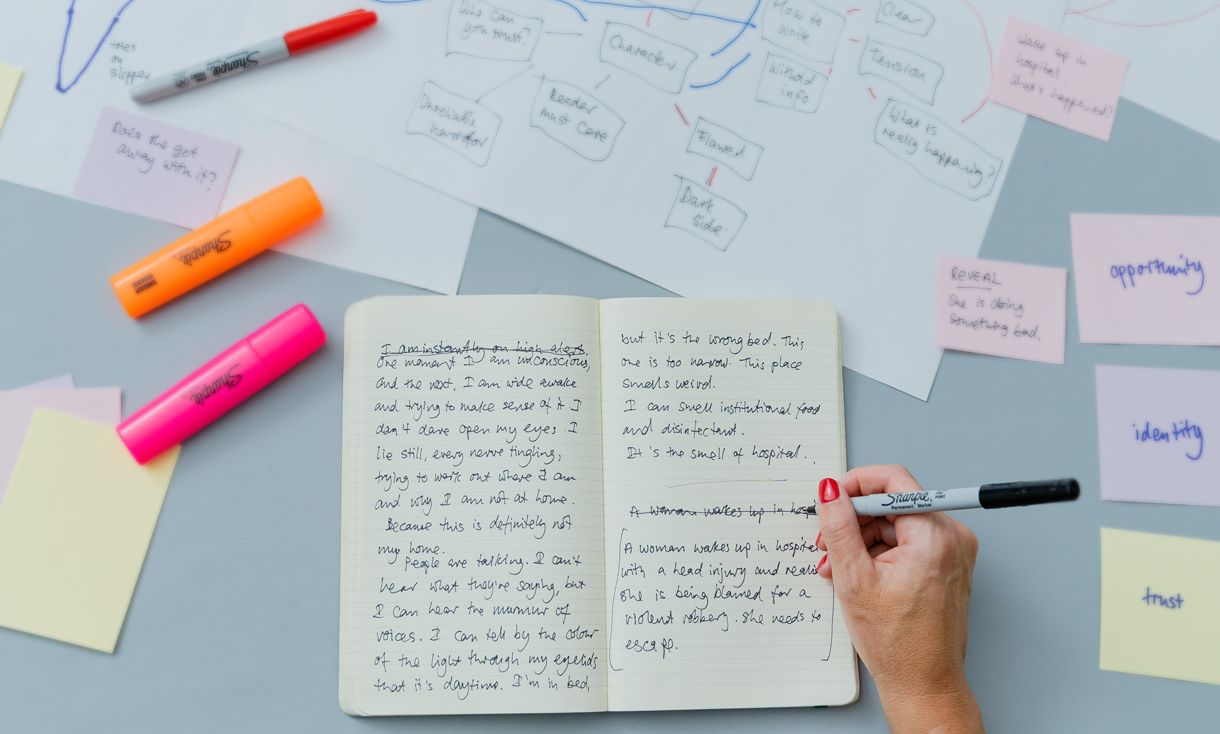 Who can
you trust?
Character
How to
write
Clear
Tension
Withold
info
Unreliable
narrator
Reader
must care
Flawed
Dark
side.
What is
really happening?
wake up in
hospital.
What's happened?
tries
on
slippers
Sharpie
Does she get
away with it?
Sharpie
Sharpie
REVEAL
she is doing
something bad.
opportunity
identity
trust
I am instantly on high alert.
One moment I am unconscious,
and the next, I am wide awake
and trying to make sense of it. I
don't dare open my eyes. I
lie still, every nerve tingling,
trying to work out where I am
and why I am not at home.
Because this is definitely not
my home.
People are talking. I can't
hear what they're saying, but
I can hear the murmur of
voices. I can tell by the colour
of the light through my eyelids
that it's daytime. I'm in bed,
but it's the wrong bed. This
one is too narrow. This place
smells weird.
I can smell institutional food
and disinfectant.
It's the smell of hospital.
A woman wakes up in hospi
A woman wakes up in hospital
with a head injury and realis
she is being blamed for a
violent robbery. She needs to
escape.
Sharpie
Permanent Marker